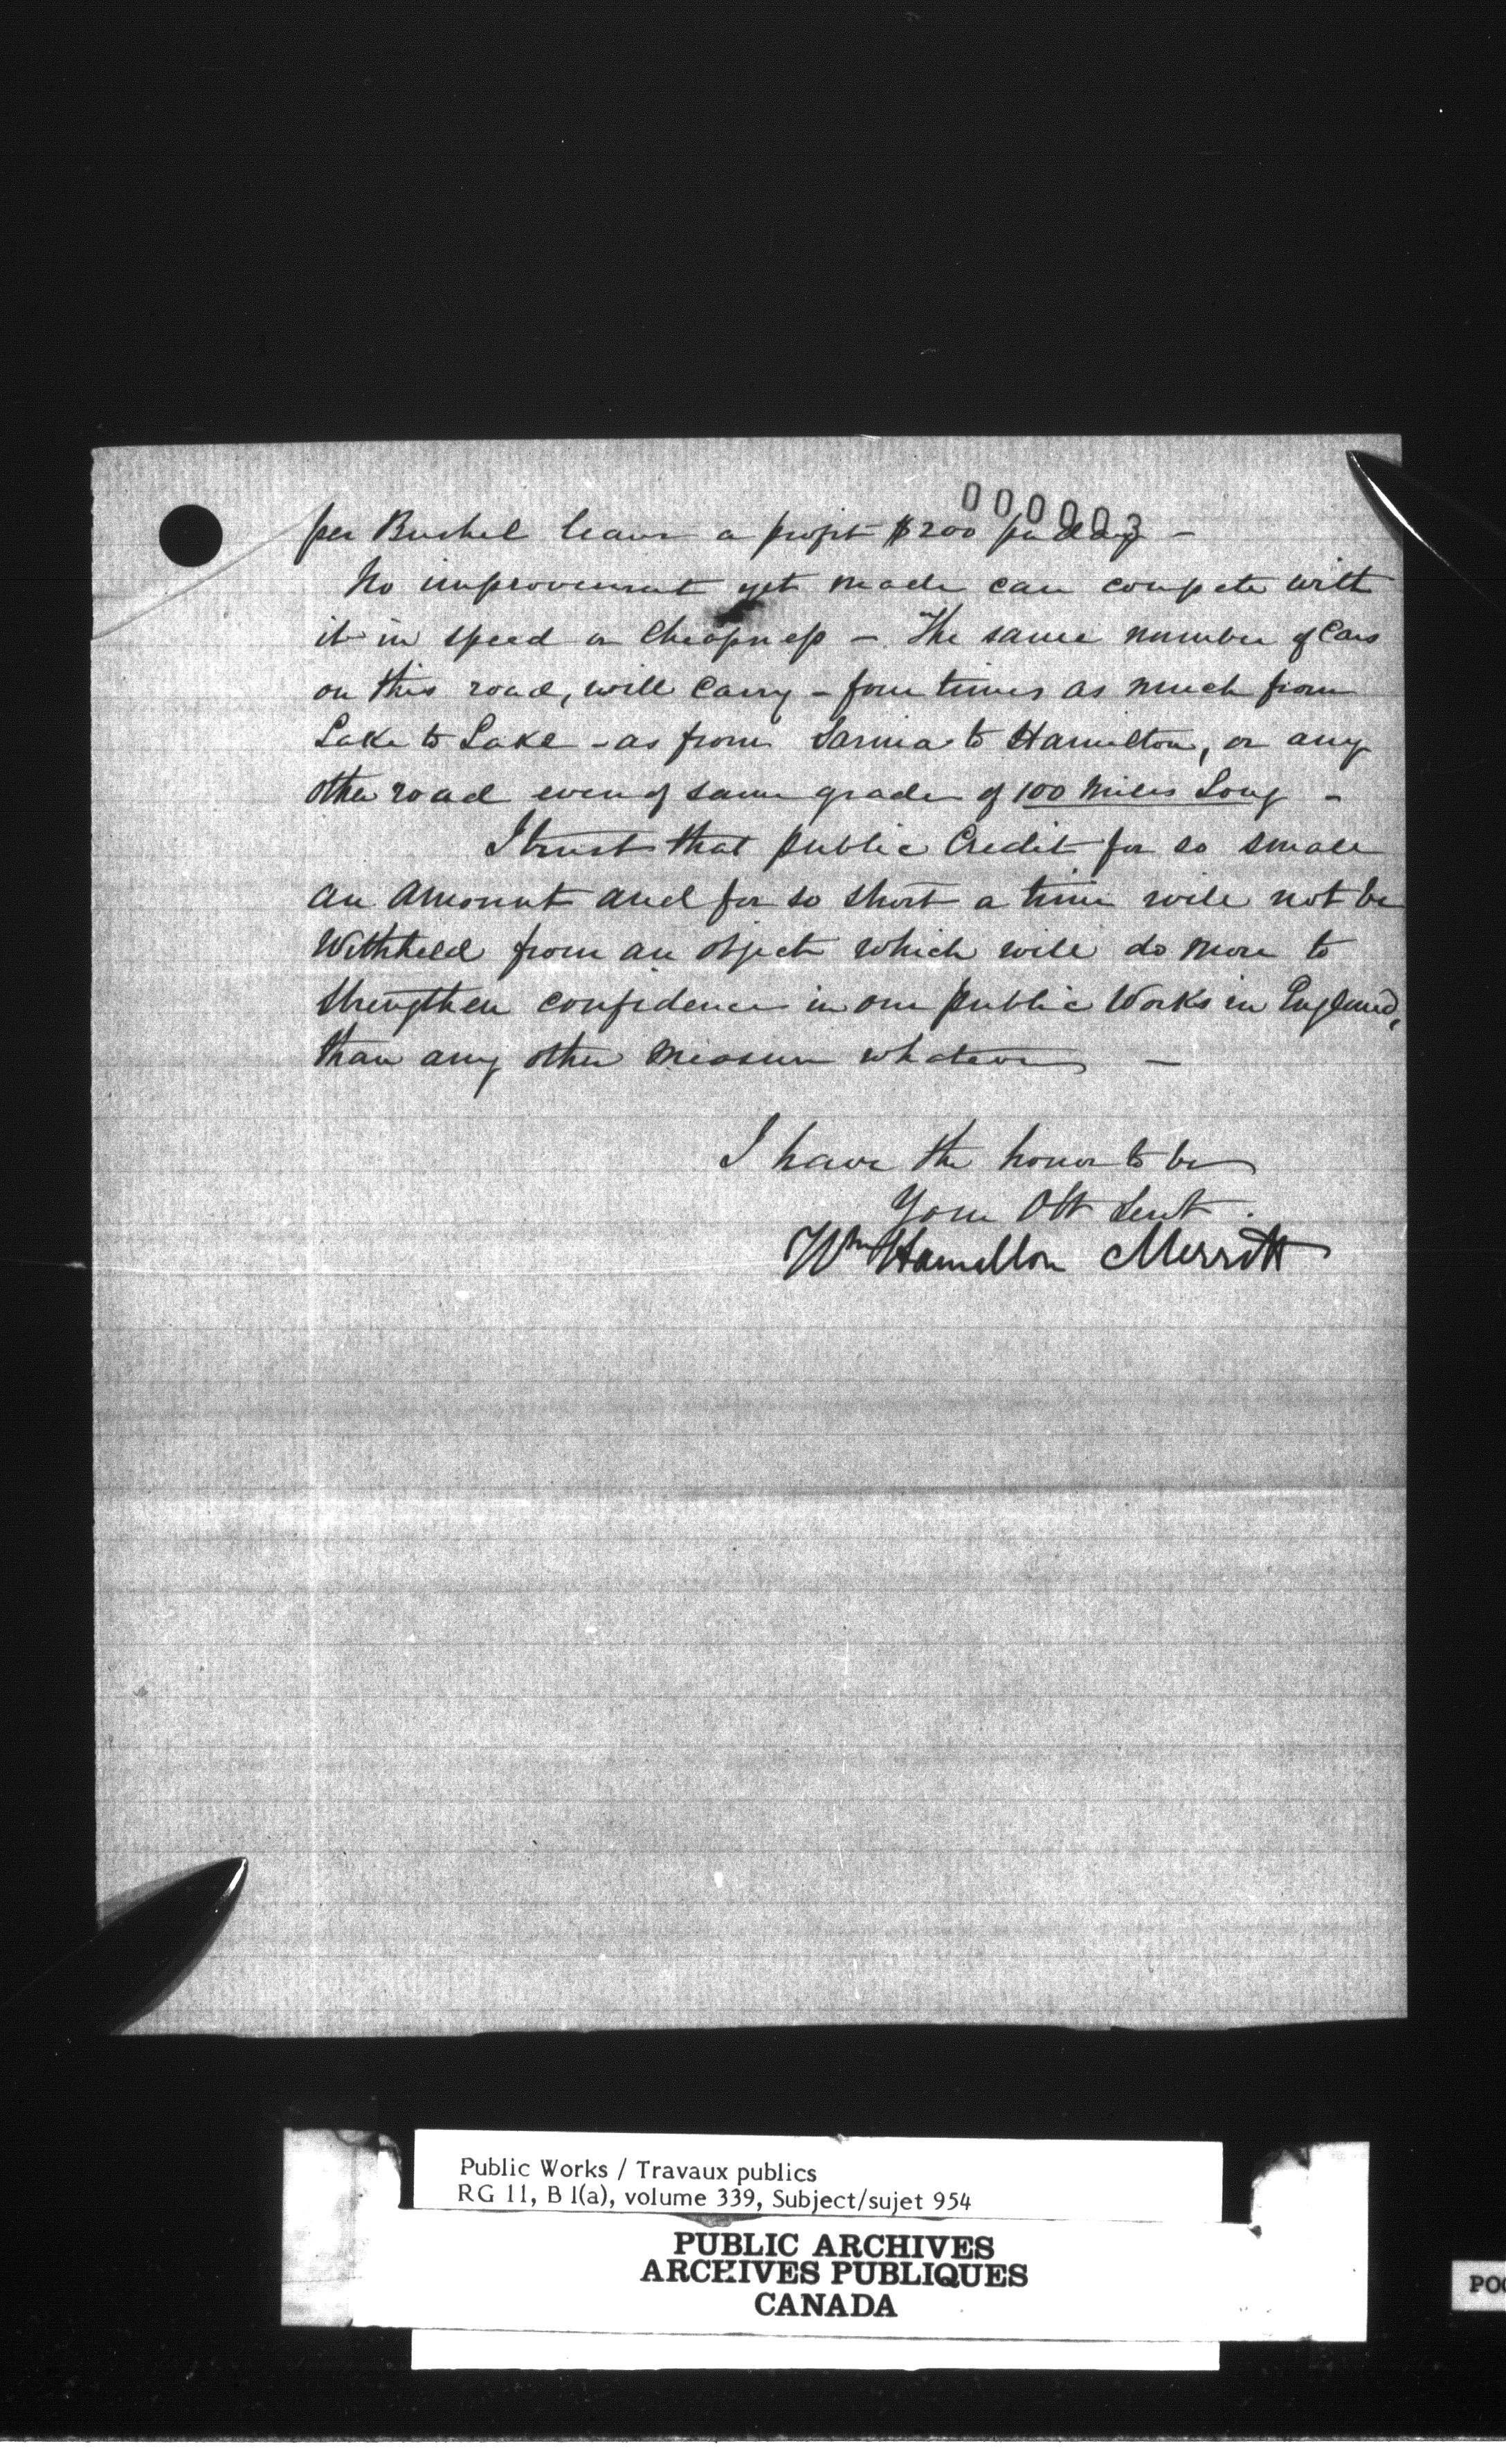 000003
per Bushel leaves a profit $200 per day –
No improvement yet made can compete with
it in speed or Cheapness – The same number of Cars
on this road, will Carry – four times as much from
Lake to Lake – as from Sarnia to Hamilton, or any
other road even of same grade of 100 Miles Long –
I trust that public Credit for so small
an amount and for so short a time will not be
Withheld from an object which will do more to
strengthen confidence in our public Works in England,
than any other measure whatever –
I have the honor to be
Your Obt Servt.
Wm Hamilton Merritt
Public Works / Travaux publics
RG 11, B 1(a), volume 339, Subject/sujet 954
PUBLIC ARCHIVES
ARCHIVES PUBLIQUES
CANADA